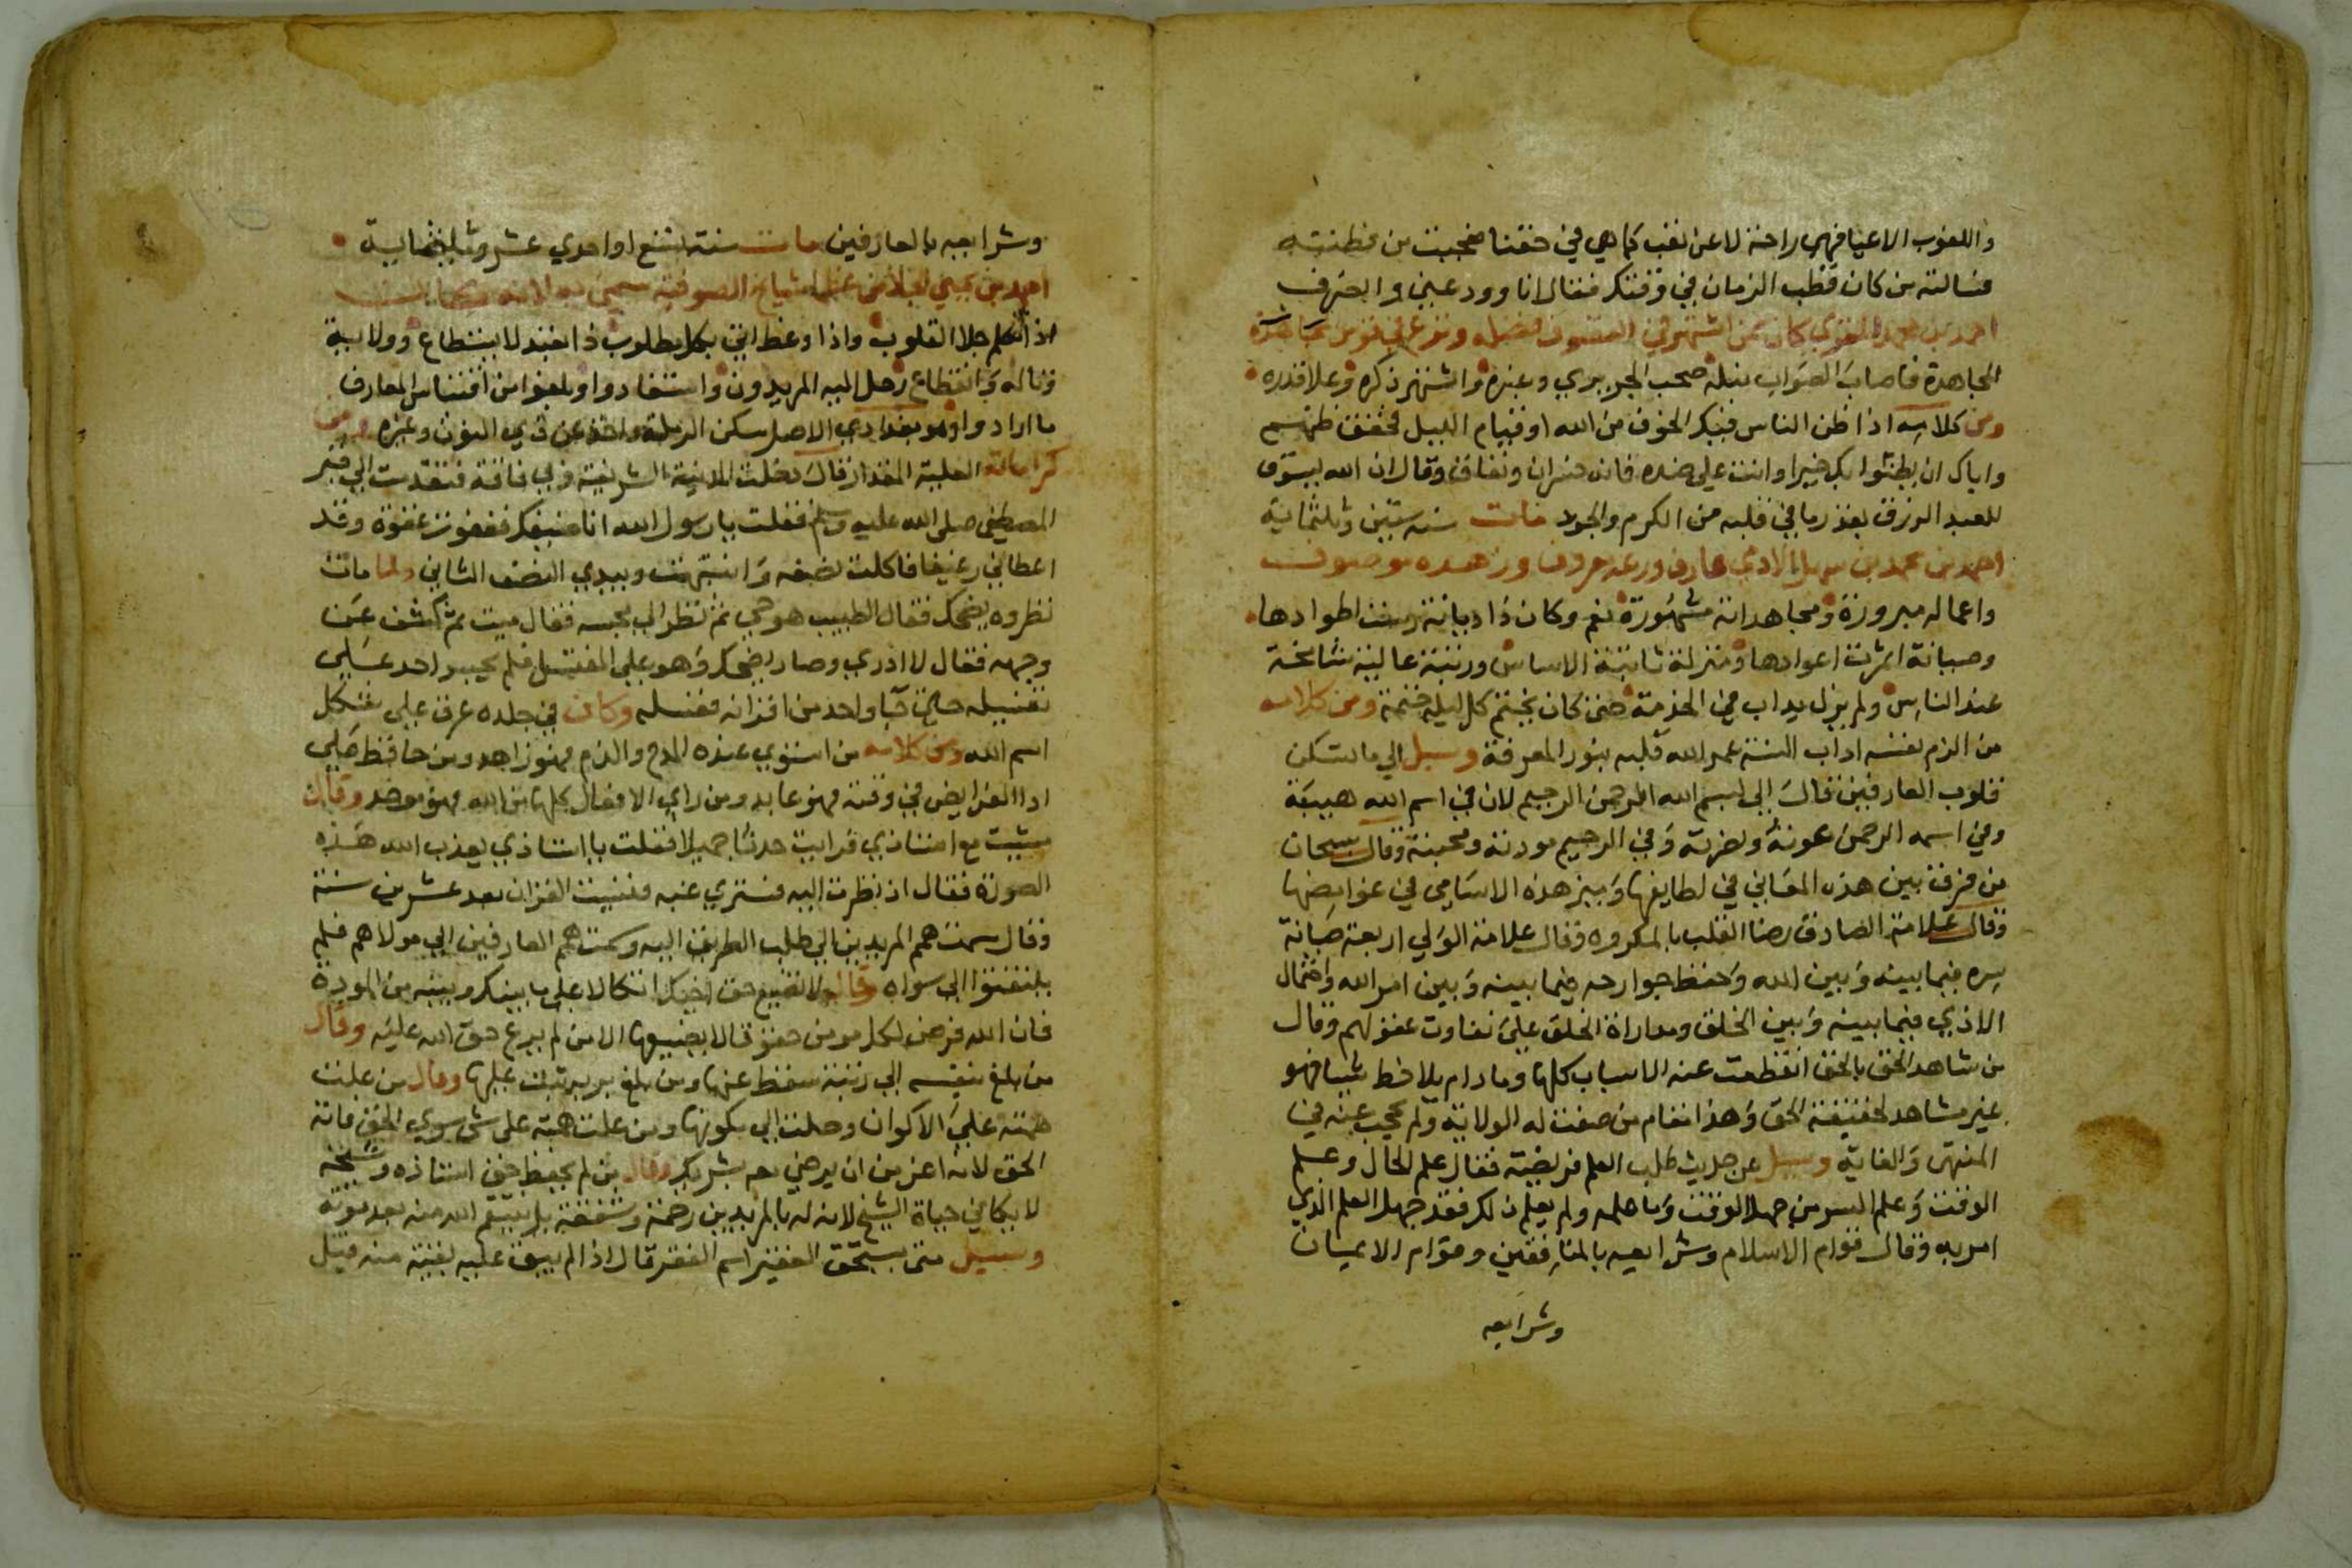 واللغوب الاعيا فهي راحة لا عن تعب كما هي في حقنا فعجبت من فطنته
فسالته من كان قطب الزمان في وقتك فقال انا وودعني وانصرف
احمد بن محمد المغربي كان ممن اشتهر في التصوف فضله
المجاهدة فاصاب الصواب نبله صحب الجريري وغيره واشتهر ذكره وعلا قدره
ومن كلامه اذا ظن الناس فيك الخوف من الله او قيام الليل فحقق ظنهم
واياك ان يظنوا بك خيرا وانت على ضده فانه خسران ونفاق وقال ان الله يسوق
للعبد الرزق بقدر ما في قلبه من الكرم والجود مات سنة ستين وثلثماية
احمد بن محمد بن سهل الادمي عارف ورعه معروف وزهده موصوف
واعماله مبرورة ومجاهداته مشهورة نعم وكان ذا ديانة اطوادها
وصيانة اثمرت اعوادها ومنزلة ثابتة الاساس ورتبة عالية شامخة
عند الناس ولم يزل يداب في الخدمة حتى كان يختم كل ليلة ختمة ومن كلامه
من الزم نفسه اداب السنة عمر الله قلبه بنور المعرفة وسيل الي ما تسكن
قلوب العارفين قال الي بسم الله الرحمن الرحيم لان في اسم الله هيبته
وفي اسمه الرحمن عونه ونصرته وفي الرحيم مودته ومحبته وقال سبحان
من فرق بين هذه المعاني في لطايفها وبين هذه الاسامي في غوامضها
وقال علامة الصادق رضا القلب بالمكروه وقال علامة الولي اربعة صيانة
سره فيما بينه وبين الله وحفظ جوارحه فيما بينه وبين امر الله واحتمال
الاذي فيما بينه وبين الخلق ومداراة الخلق علي تفاوت عقولهم وقال
من شاهد الحق بالحق انقطعت عنه الاسباب كلها وما دام يلاحظ شيا فهو
غير مشاهد لحقيقة الحق وهذا مقام من صفت له الولاية ولم يحجب عنه في
المنتهى والغاية وسيل عن حديث طلب العلم فريضة فقال علم الحال وعلم
الوقت وعلم السر من جهل الوقت وما عليه ولم يعلم ذلك فقد جهل العلم الذي
امر به وقال قوام الاسلام وشرايعه بالمنافقين وقوام الايمان
وشرايعه
وشرايعه بالعارفين مات سنة تسع او احدي عشر وثلثماية
احمد بن يحيى الجلا من عظما مشايخ الصوفية سمي به لانه كان
اذا تكلم جلا القلوب واذا وعظ اتي بكل مطلوب ذا تعبد لا يستطاع وولاية
وتاله وانقطاع رحل اليه المريدون واستفادوا وبلغوا من اقتناس المعارف
ما ارادوا وهو بغدادي الاصل سكن الرملة واخذ عن ذي النون وغيره ومن
كراماته العلية المقدار قال دخلت المدينة الشريفة وبي فاقة فتقدمت الي قبر
المصطفي صلى الله عليه وسلم فقلت يا رسول الله انا ضيفك فغفوت غفوة وقد
اعطاني رغيفا فاكلت نصفه وانتبهت وبيدي النصف الثاني ولما مات
نظروه يضحك فقال الطبيب هو حي ثم نظر الي مجسه فقال ميت ثم كشف عن
وجهه فقال لا ادري وصار يضحك وهو علي المغتسل فلم يجسر احد علي
تغسيله حتى جا واحد من اقرانه فغسله وكان في جلده عرق علي شكل
اسم الله ومن كلامه من استوي عنده المدح والذم فهو زاهد ومن حافظ علي
ادا الفرايض في وقته فهو عابد ومن راي الافعال كلها من الله فهو موحد وقال
مشيت مع استاذي فرايت حدثا جميلا فقلت يا استاذي يعذب الله هذه
الصورة فقال او نظرت اليه فستري غبه فنسيت القران بعد عشرين سنة
وقال سمت همم المريدين الي طلب الطريق اليه وسمت همم العارفين الي مولاهم فلم
يلتفتوا الي سواه وقال لا تضيع حق اخيك اتكالا علي ما بينك وبينه من المودة
فان الله فرض لكل مومن حقوقا لا يضيعها الا من لم يرع حق الله عليه وقال
من بلغ بنفسه الي رتبة سقط عنها ومن بلغ بربه ثبت عليها وقال من علت
همته علي الاكوان وصلت الي مكونها ومن علت همته علي شي سوي الحق فاته
الحق لانه اعز من ان يرضي معه بشريك وقال من لم يحفظ حق استاذه وشيخه
لا يكافي حياة الشيخ لانه له بالمريدين رحمة وشفقة بل ينتقم الله منه بعد موته
وسيل متى يستحق الفقير اسم الفقر قال اذا لم يبق عليه بقية منه قيل